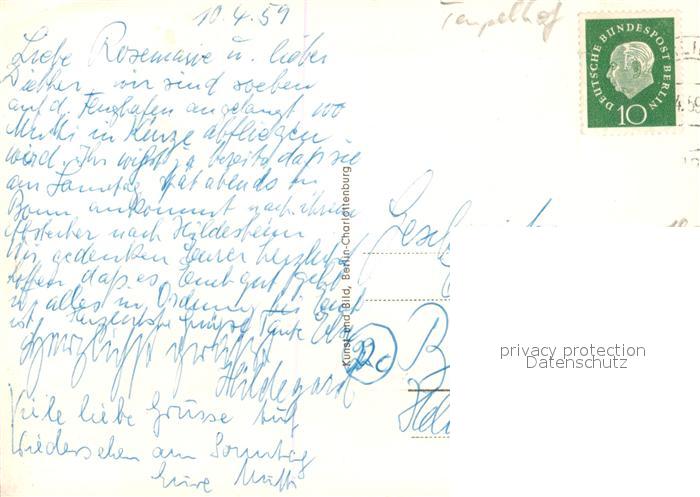 10.4.59
Tempelhof
Liebe Rosemarie u. lieber
Diether, wir sind soeben
auf d. Flughafen angelangt wo
Mutti in Kürze abfliegen
wird. Ihr wißt ja bereits daß sie
am Samstag spät abends in
Bonn ankommt nach ihrem
Abstecher nach Hildesheim
Wir gedenken Eurer herzlichst
hoffen daß es Euch gut geht
u. alles in Ordnung bei Euch
ist. Tante
Herzlichst grüßt
Hildegard
Viele liebe Grüsse auf
Wiedersehen am Sonntag
Eure Mutti
Kunst und Bild, Berlin-Charlottenburg
DEUTSCHE BUNDESPOST BERLIN
10
4.59
22c
privacy protection
Datenschutz